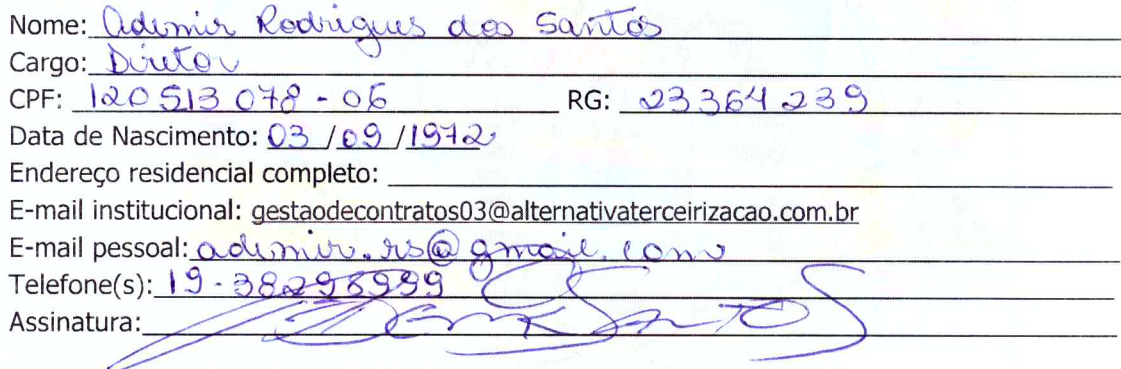 Nome: Ademir Rodrigues dos Santos
Cargo: Diretor
CPF: 120 513 078 - 06 RG: 23364239
Data de Nascimento: 03 / 09 / 1972
Endereço residencial completo:
E-mail institucional: gestaodecontratos03@alternativaterceirizacao.com.br
E-mail pessoal: ademir.rs@gmail.com
Telefone(s): 19-38298999
Assinatura: Santos